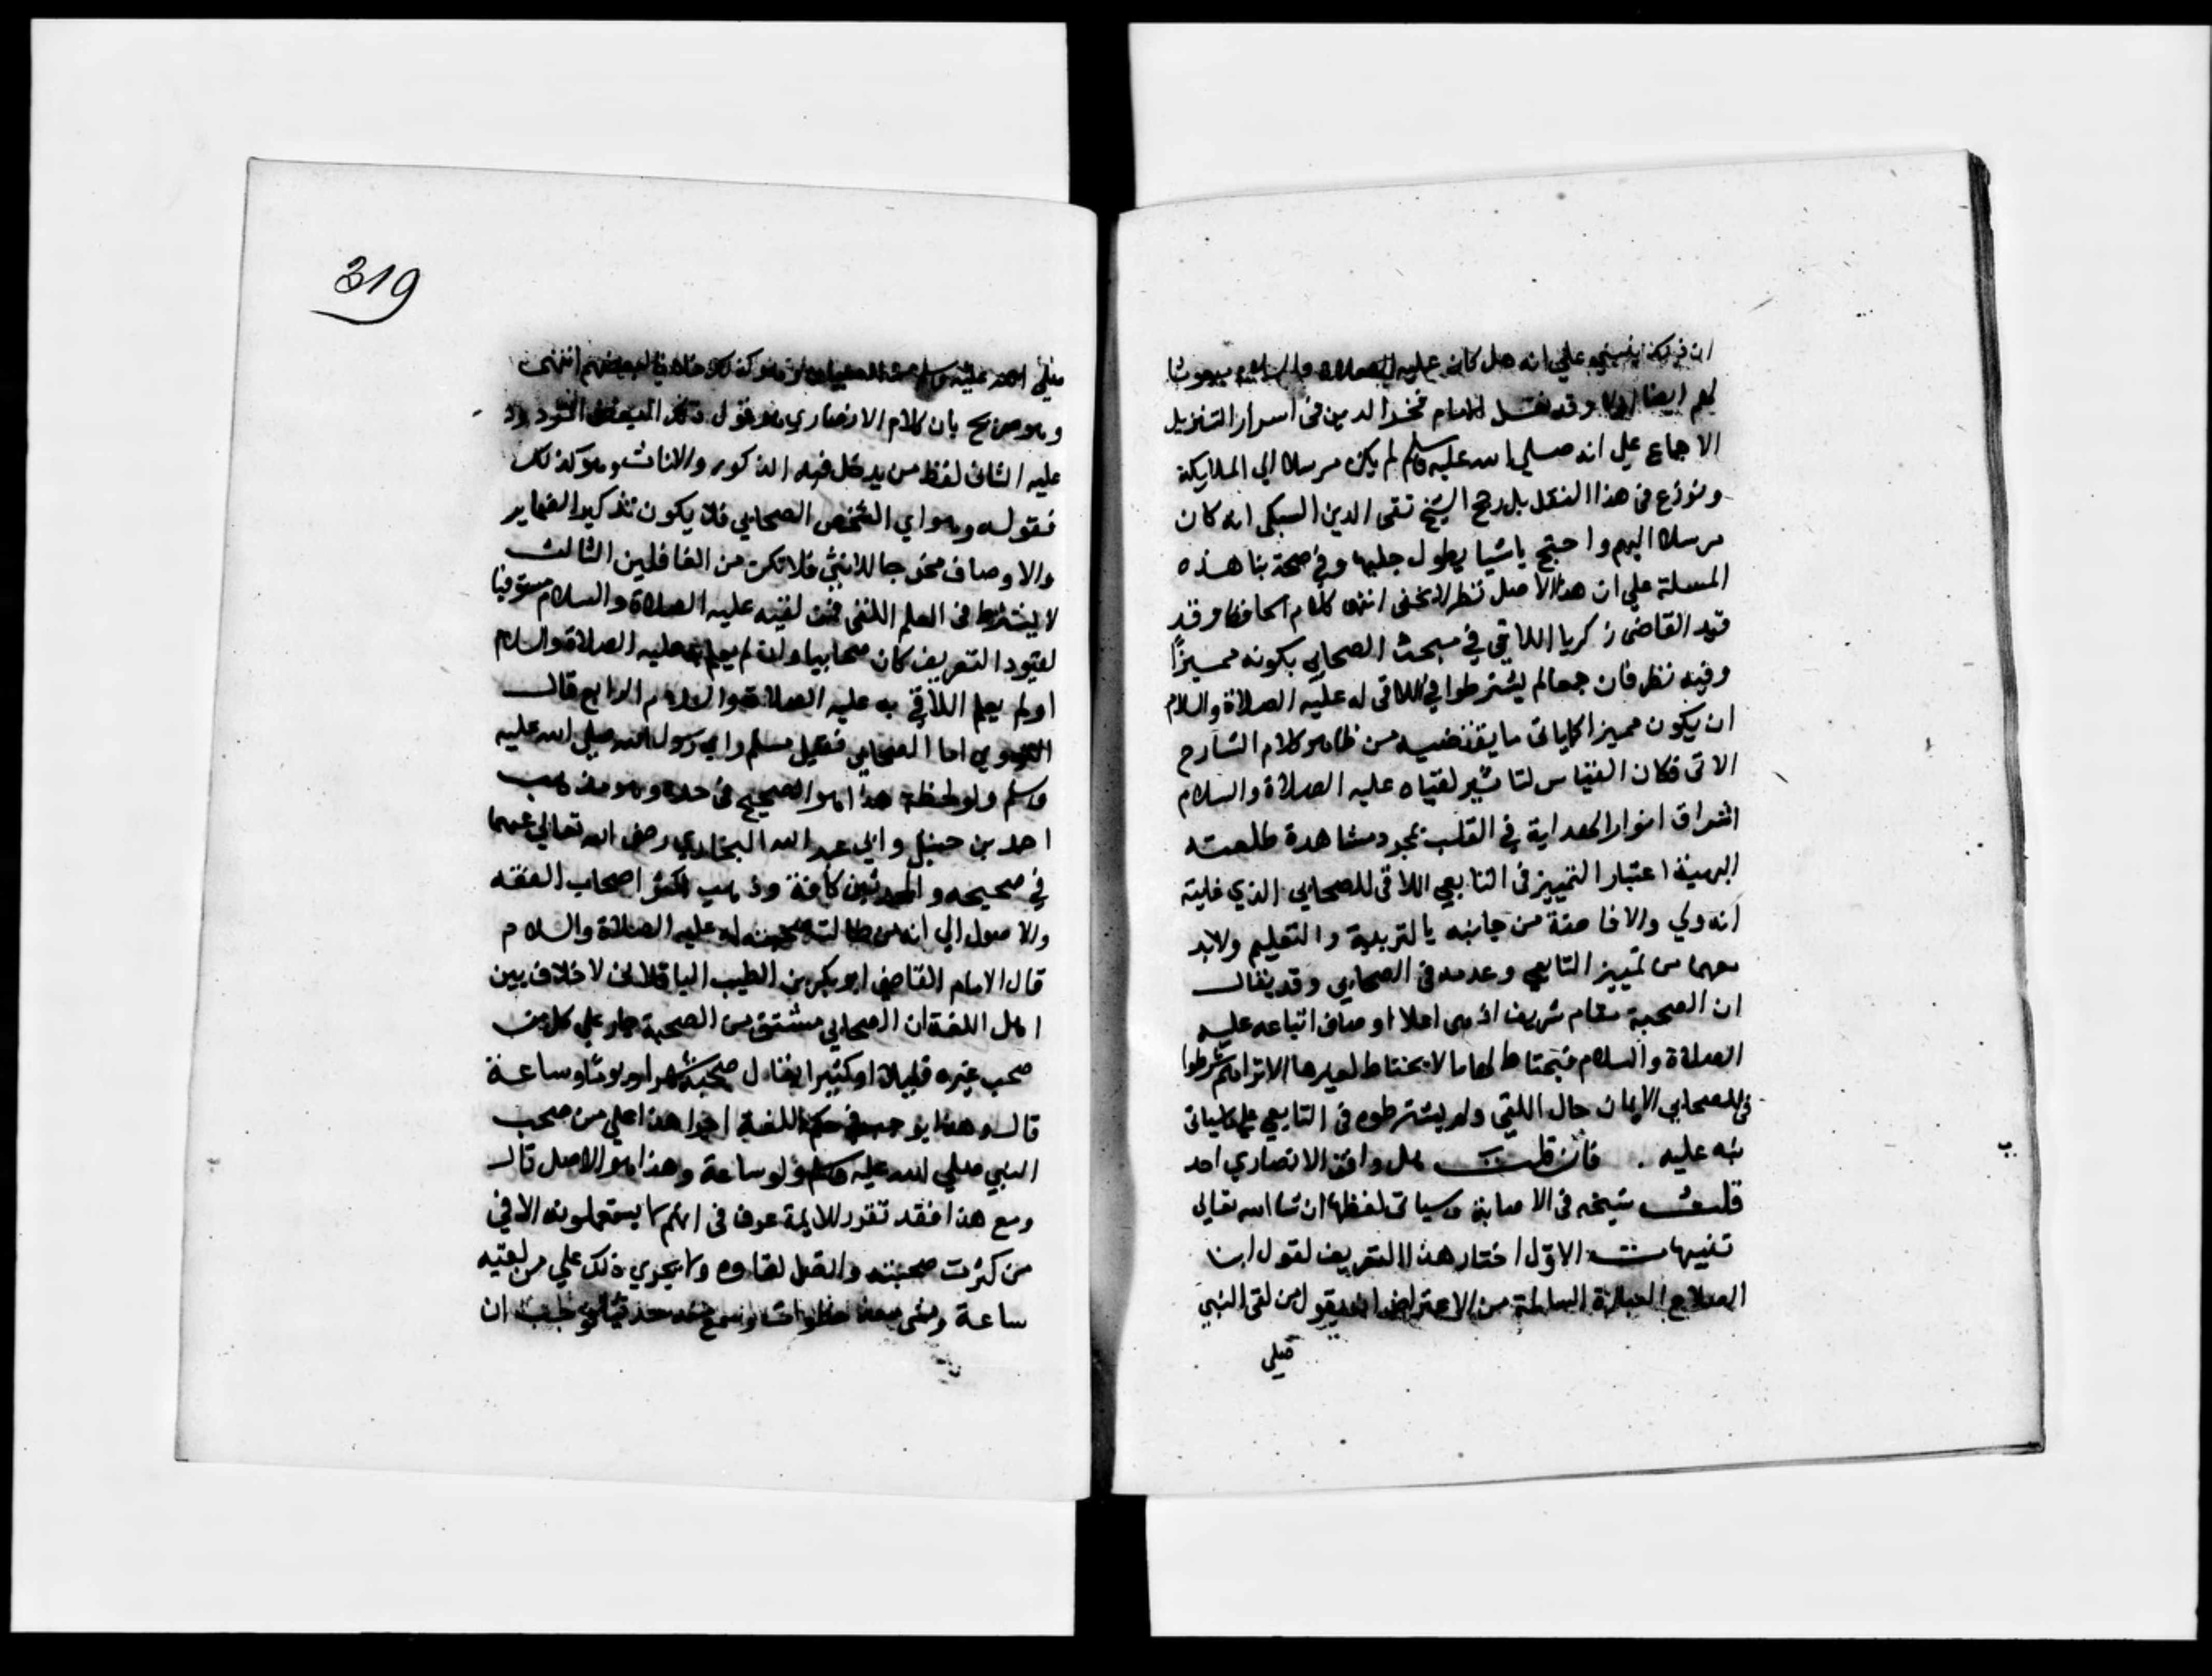 ان ذلك ينبني علي انه هل كان عليه الصلاة والسلام مبعوثا
لهم ايضا او لا وقد نقل الامام فخر الدين في اسرار التنزيل
الاجماع علي انه صلي الله عليه وسلم لم يكن مرسلا الي الملايكة
ونوزع في هذا النقل بل رجح الشيخ تقي الدين السبكي انه كان
مرسلا اليهم واحتج باشيا يطول جلبها وفي صحة بنا هذه
المسلة علي ان هذا الاصل نظر لا يخفي انتهي كلام الحافظ وقد
قيد القاضي زكريا اللاقي في مبحث الصحابي بكونه مميزا
وفيه نظر فان جمعا لم يشترطوا في اللاقي له عليه الصلاة والسلام
ان يكون مميزا كما ياتي ما يقتضيه من ظاهر كلام الشارح
الاتي فكان القياس لتاثير لقياه عليه الصلاة والسلام
اشراق انوار الهداية في القلب بمجرد مشاهدة طلعته
البهية اعتبار التمييز في التابعي اللاقي للصحابي الذي غايته
انه ولي والافاضة من جانبه بالتربية والتعليم ولابد
معهما من تمييز التابعي وعدمه في الصحابي وقد يقال
ان الصحبة مقام شريف اذ هي اعلا اوصاف اتباعه عليه
الصلاة والسلام فيحتاط لها ما لا يحتاط لغيرها الا تراهم شرطوا
في الصحابي الايمان حال اللقي ولم يشترطوه في التابعي علي ما ياتي
نبه عليه . فان قلت هل وافق الانصاري احد
قلت شيخه في الاصابة وسياتي لفظها ان شا الله تعالي
تنبيهات الاول اختار هذا التعريف لقول ابن
الصلاح العبارة السالمة من الاعتراض ان يقول من لقي النبي
صلي
319
صلي الله عليه وسلم
وهو صريح بان كلام الانصاري هو قول ذلك البعض
عليه الثاني لفظ من يدخل فيه الذكور والاناث وهو كذلك
فقوله وهو اي الشخص الصحابي فلا يكون تذكير الضماير
والاوصاف مخرجا للانثي فلا تكن من الغافلين الثالث
لا يشترط في العلم اللقي فمن لقيه عليه الصلاة والسلام مستوفيا
لقيود التعريف كان صحابيا وان لم يعلم به عليه الصلاة والسلام
او لم يعلم اللاقي به عليه الصلاة والسلام الرابع قال
النووي اما الصحابي فقيل مسلم راي رسول الله صلي الله عليه
وسلم ولو لحظة هذا هو الصحيح في حده وهو مذهب
احمد بن حنبل وابي عبد الله البخاري رضي الله تعالي عنهما
في صحيحه والمحدثين كافة وذهب اكثر اصحاب الفقه
والاصول الي انه من طالت صحبته له عليه الصلاة والسلام
قال الامام القاضي ابو بكر بن الطيب الباقلاني لا خلاف بين
اهل اللغة ان الصحابي مشتق من الصحبة جار علي كل من
صحب غيره قليلا او كثيرا يقال صحبه شهرا ويوما وساعة
قال وهذا يوجب في حكم اللغة اجرا هذا علي من صحب
النبي صلي الله عليه وسلم ولو ساعة وهذا هو الاصل قال
ومع هذا فقد تقرر للايمة عرف في انهم لا يستعملونه الا في
من كثرت صحبته واتصل لقاوه ولا يجري ذلك علي من لقيه
ساعة ومشي معه خطوات وسمع منه حديثا فوجب ان